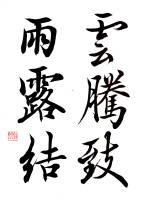 雲騰致
雨露結